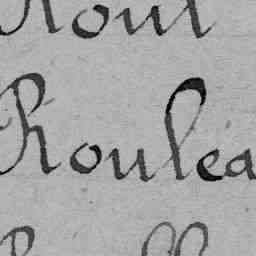 Roul
Roulea